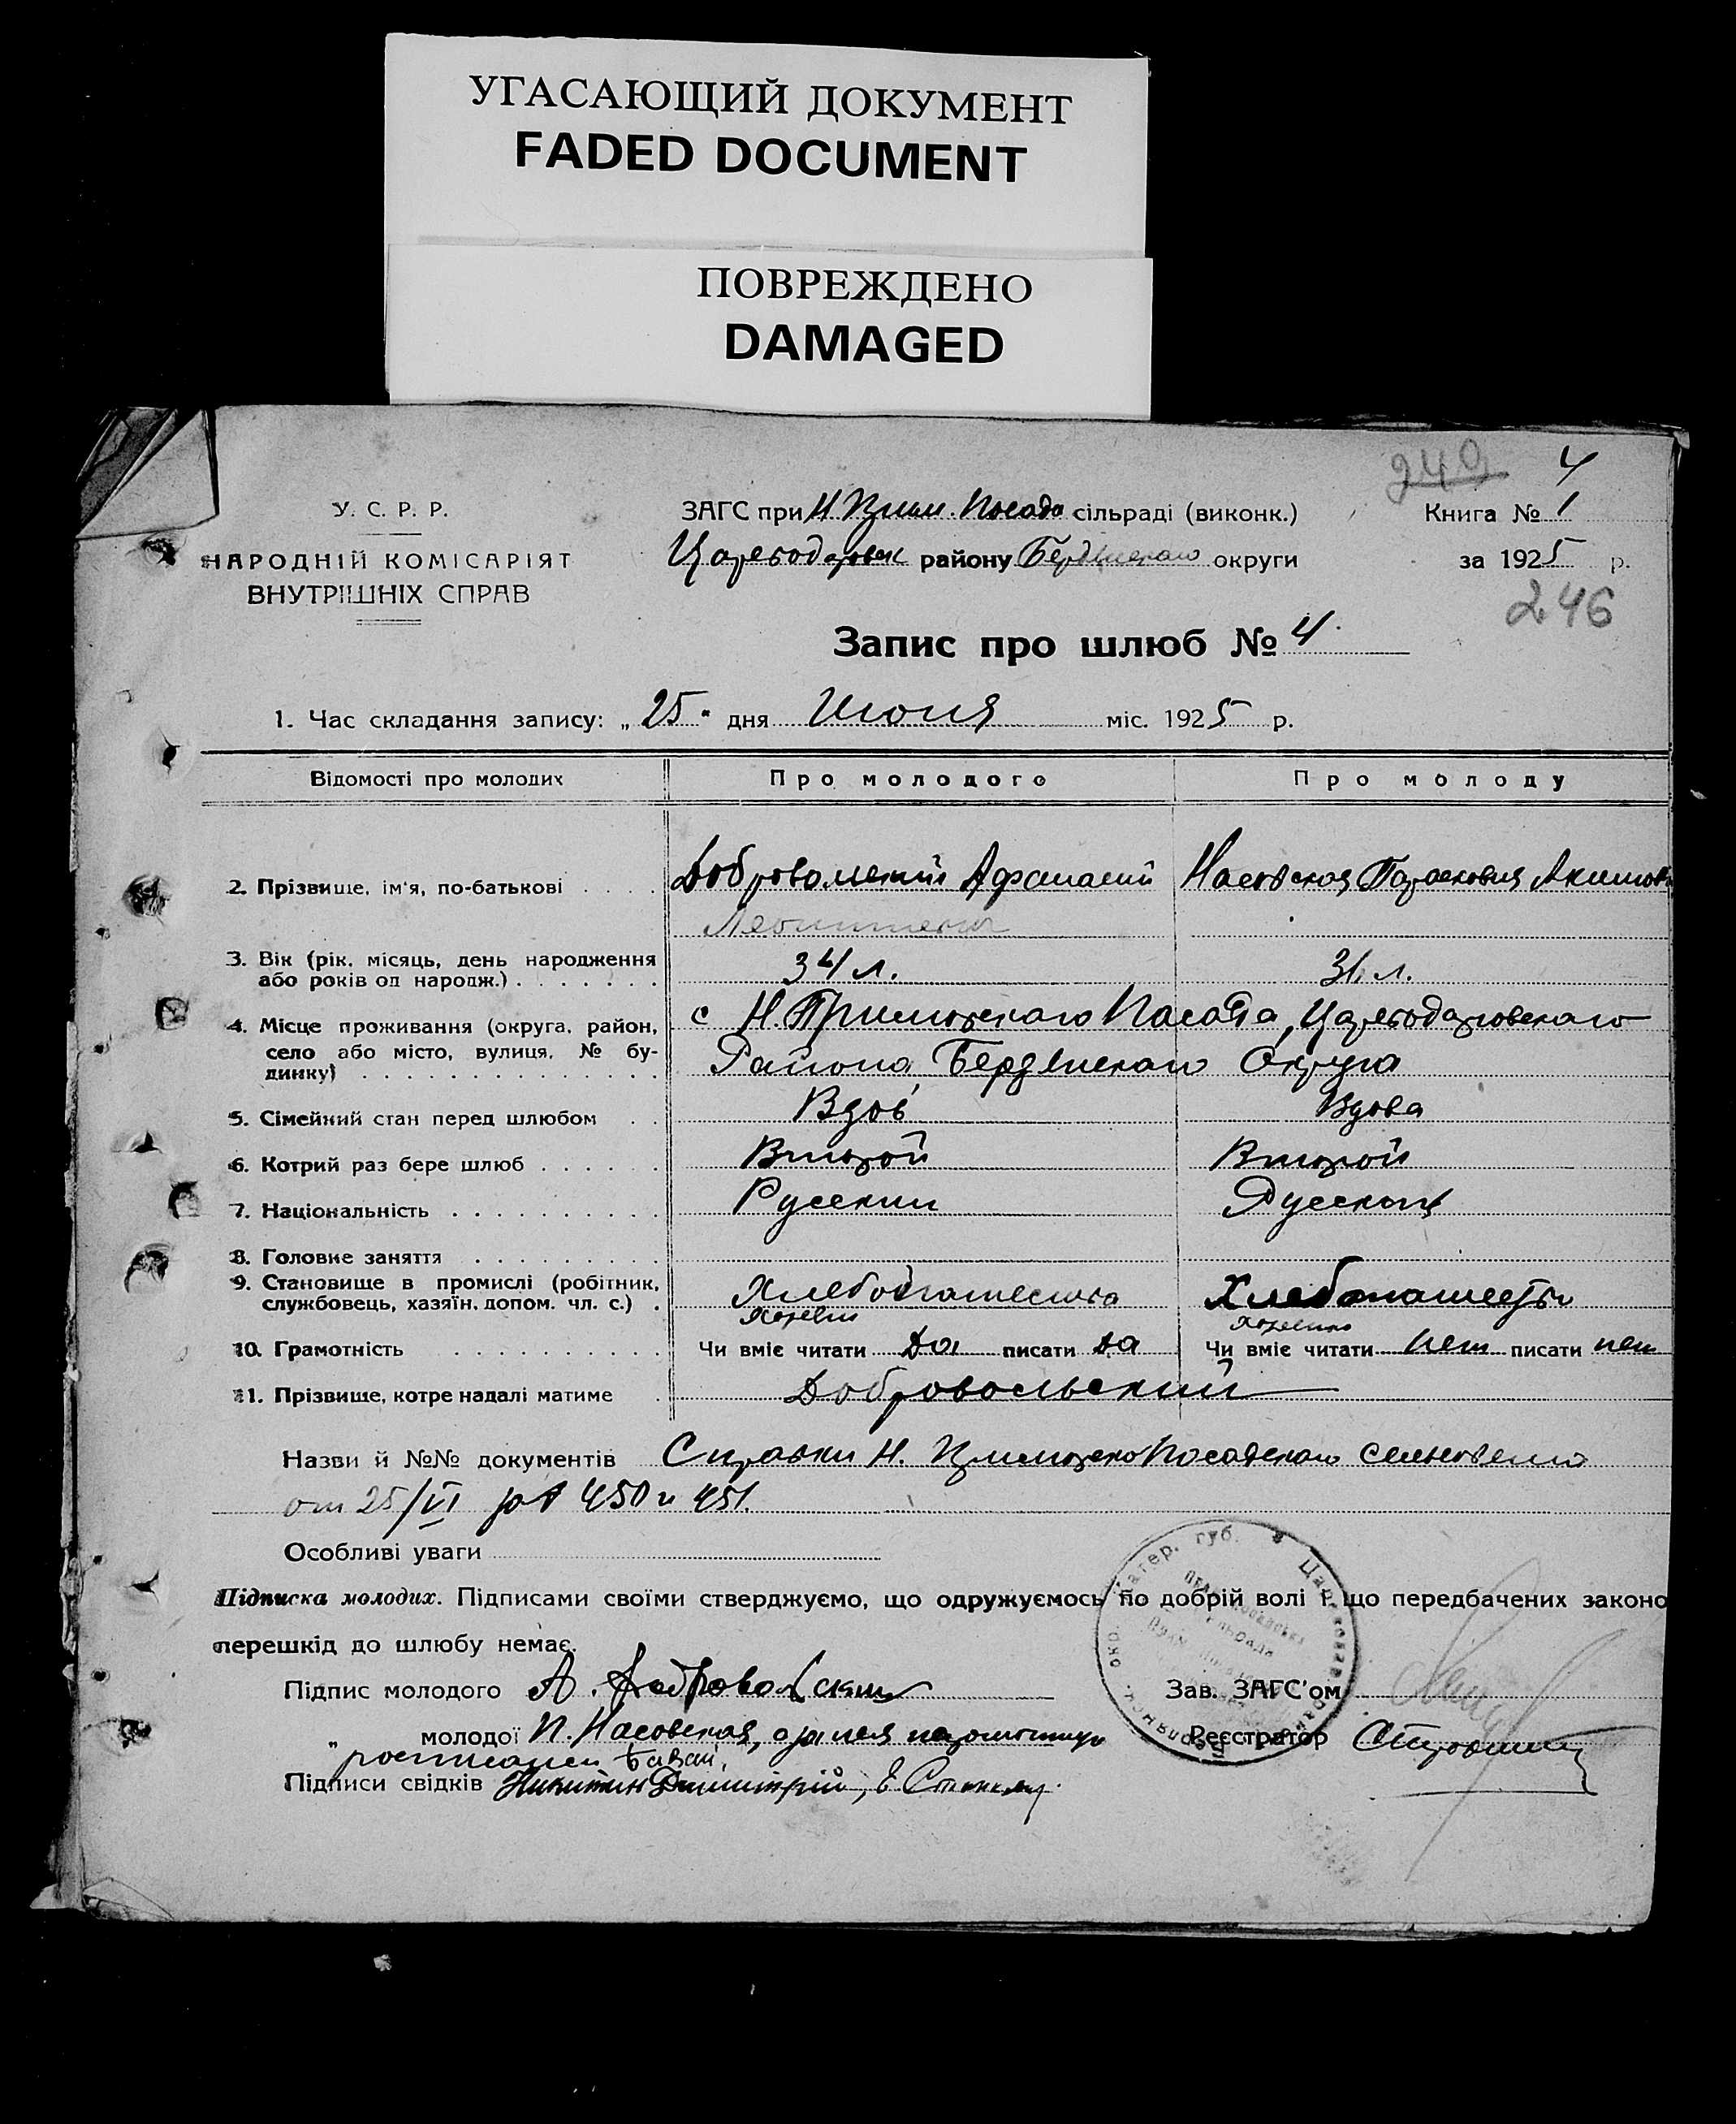 УГАСАЮЩИЙ ДОКУМЕНТ
FADED DOCUMENT
ПОВРЕЖДЕНО
DAMAGED
240 4
У. С. Р. Р.
НАРОДНІЙ КОМІСАРІЯТ
ВНУТРІШНІХ СПРАВ
ЗАГС при Н Прим. Посада сільраді (виконк.)
Цареводаровск району Бердянскаго округи
Книга № 1
за 1925 р.
246
Запис про шлюб № 4
1. Час складання запису: „25" дня Июня міс. 1925 р.
Відомості про молодих Про молодого Про молоду
2. Прізвище, ім'я, по-батькові . . . . Добровольский Афанасий Насовская Парасковия Акимов
3. Вік (рік, місяць, день народження
або років од народж.) . . . . . . . 34 л. 31 л.
4. Місце проживання (округа, район,
село або місто, вулиця, № бу-
динку) с Н. Приморскаго Посада, Цареводаровскаго
Района, Бердянскаго Округа
5. Сімейний стан перед шлюбом . . Вдов Вдова
6. Котрий раз бере шлюб . . . . . . Второй Второй
7. Національність . . . . . . . . . . Русский Русская
8. Головне заняття . . . . . . . . .
9. Становище в промислі (робітник,
службовець, хазяїн, допом. чл. с.) . Хлебопашество Хлебопашество
10. Грамотність . . . . . . . . . . Чи вміє читати Да писати Да Чи вміє читати Нет писати нет
11. Прізвище, котре надалі матиме . Добровольский
Назви й №№ документів Справки Н. Приморско Посадскаго сельсовета
от 25/VI № 450 и 451.
Особливі уваги
Підписка молодих. Підписами своїми стверджуємо, що одружуємось по добрій волі і що передбачених законо
перешкід до шлюбу немає.
Підпис молодого А. Добровольский
„ молодої П. Насовская, а за нея неграмотную
росписался
Підписи свідків Никитин Димитрій,
Зав. ЗАГС'ом
Реєстратор